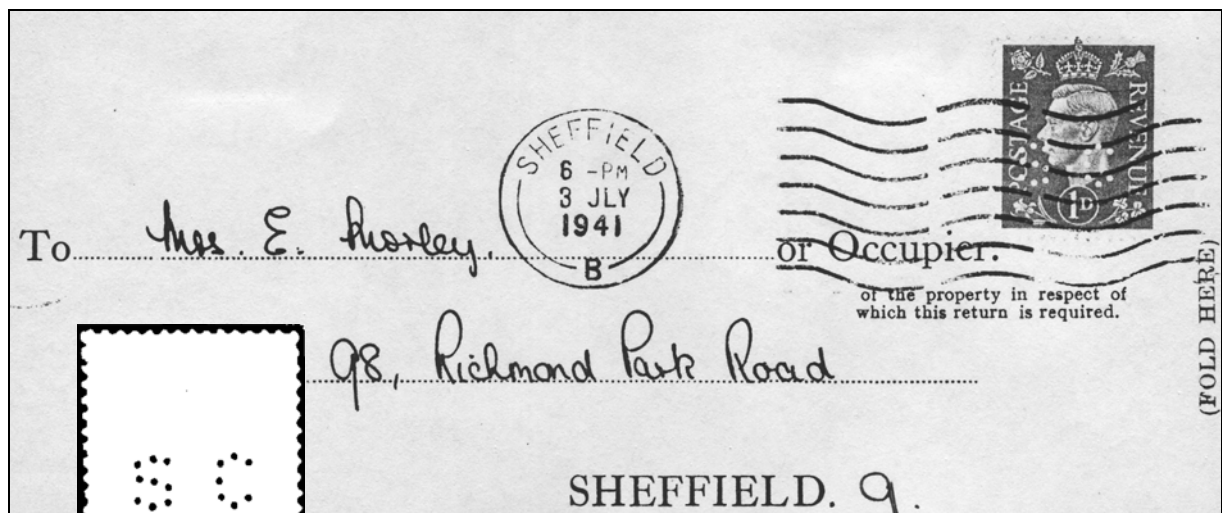 POSTAGE REVENUE
1D
SHEFFIELD
6 -PM
3 JLY
1941
B
To Mrs. E. Morley. or Occupier.
of the property in respect of
which this return is required.
(FOLD HERE)
98, Richmond Park Road
S C
SHEFFIELD. 9.